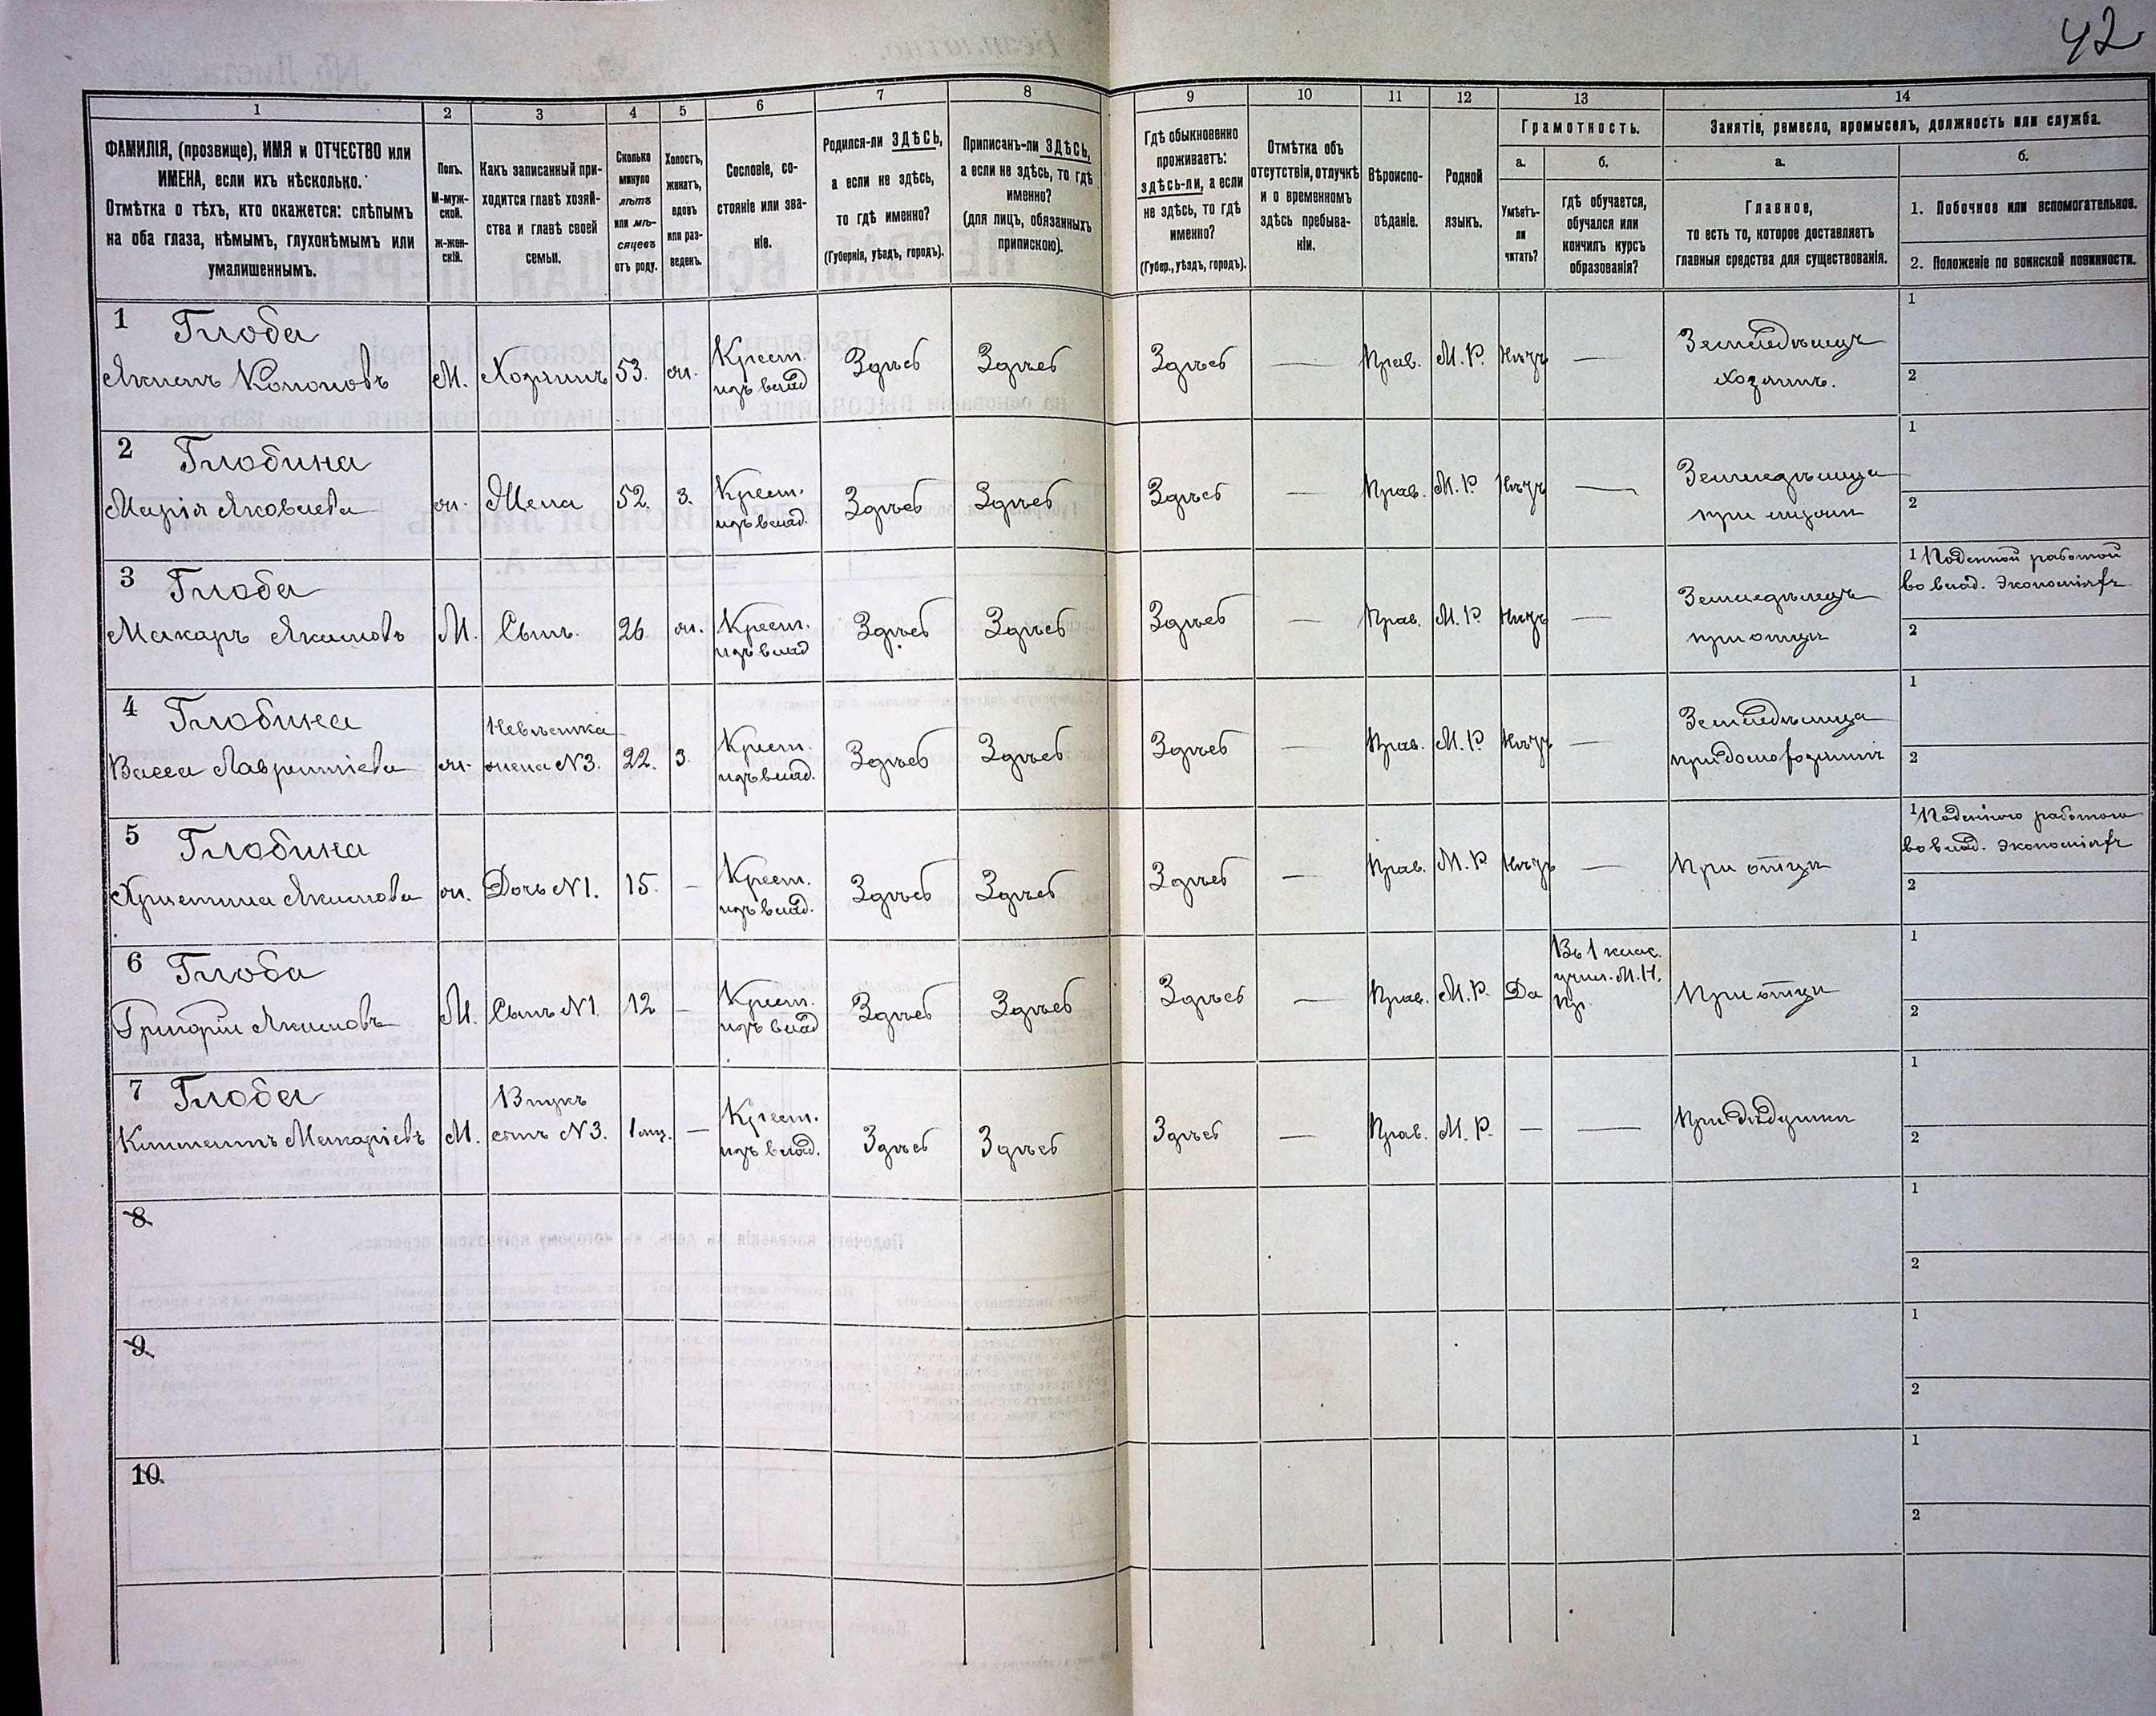 42
1 2 3 4 5 6 7 8 9 10 11 12 13 14
ФАМИЛІЯ, (прозвище), ИМЯ и ОТЧЕСТВО или
ИМЕНА, если ихъ нѣсколько.
Отмѣтка о тѣхъ, кто окажется: слѣпымъ
на оба глаза, нѣмымъ, глухонѣмымъ или
умалишеннымъ.
Полъ.
М-муж-
ской.
ж-жен-
скій.
Какъ записанный при-
ходится главѣ хозяй-
ства и главѣ своей
семьи.
Сколько
минуло
лѣтъ
или мѣ-
сяцевъ
отъ роду.
Холостъ,
женатъ,
вдовъ
или раз-
веденъ.
Сословіе, со-
стояніе или зва-
ніе.
Родился-ли ЗДѢСЬ,
а если не здѣсь,
то гдѣ именно?
(Губернія, уѣздъ, городъ).
Приписанъ-ли ЗДѢСЬ,
а если не здѣсь, то гдѣ
именно?
(для лицъ, обязанныхъ
припискою).
Гдѣ обыкновенно
проживаетъ:
здѣсь-ли, а если
не здѣсь, то гдѣ
именно?
(Губер., уѣздъ, городъ).
Отмѣтка объ
отсутствіи, отлучкѣ
и о временномъ
здѣсь пребыва-
ніи.
Вѣроиспо-
вѣданіе.
Родной
языкъ.
Грамотность.
а.
Умѣетъ-
ли
читать?
б.
гдѣ обучается,
обучался или
кончилъ курсъ
образованія?
Занятіе, ремесло, промыселъ, должность или служба.
а.
Главное,
то есть то, которое доставляетъ
главныя средства для существованія.
б.
1. Побочное или вспомогательное.
2. Положеніе по воинской повинности.
1 Глоба
Якимъ Кононовъ
М.
Хозяинъ
53.
ж.
Крест.
изъ влад
Здѣсь
Здѣсь
Здѣсь
—
Прав.
М. Р.
Нѣтъ
—
Земледѣлецъ
хозяинъ.
1
2
2 Глобина
Марія Яковлева
ж.
Жена
52.
З.
Крест.
изъ влад.
Здѣсь
Здѣсь
Здѣсь
—
Прав.
М. Р.
Нѣтъ
—
Земледѣлица
при
1
2
3 Глоба
Макаръ Якимовъ
М.
Сынъ.
26.
ж.
Крест.
изъ влад
Здѣсь
Здѣсь
Здѣсь
—
Прав.
М. Р.
Нѣтъ
—
Земледѣлецъ
при отцѣ
1 Поденной работой
во влад. экономіяхъ
2
4 Глобина
Васса Лаврентіева
ж.
Невѣстка
жена N3.
22.
З.
Крест.
изъ влад.
Здѣсь
Здѣсь
Здѣсь
—
Прав.
М. Р.
Нѣтъ
—
Земледѣлица
при домохозяинѣ
1
2
5 Глобина
Христина Якимова
ж.
Дочь N1.
15.
—
Крест.
изъ влад.
Здѣсь
Здѣсь
Здѣсь
—
Прав.
М. Р.
Нѣтъ
—
При отцѣ
1 Поденною работою
во влад. экономіяхъ
2
6 Глоба
Григорій Якимовъ
М.
Сынъ N1.
12
—
Крест.
изъ влад
Здѣсь
Здѣсь
Здѣсь
—
Прав.
М. Р.
Да
Въ 1 клас.
учил. М. Н.
Пр.
При отцѣ
1
2
7 Глоба
Климентъ Макаріевъ
М.
Внукъ
сынъ N3.
1 мц.
—
Крест.
изъ влад.
Здѣсь
Здѣсь
Здѣсь
—
Прав.
М. Р.
—
—
При дѣдушкѣ
1
2
8
1
2
9
1
2
10
1
2